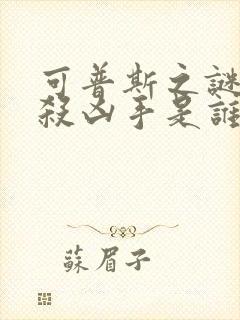 可普斯之謎
殺凶手是誰
蘇眉子